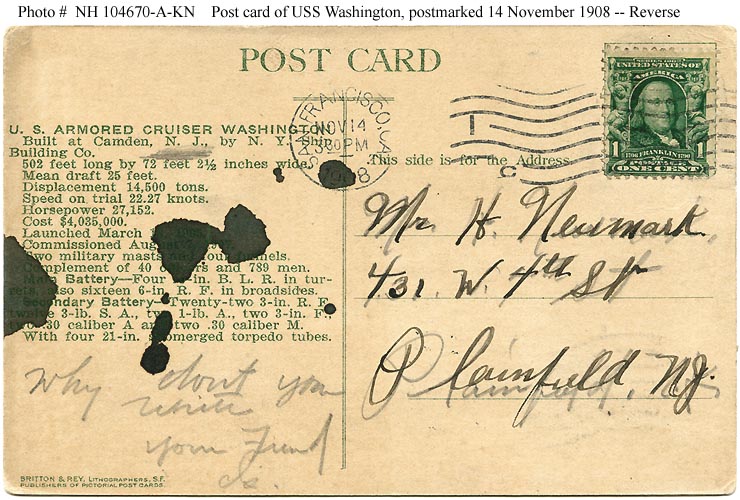 Photo # NH 104670-A-KN Post card of USS Washington, postmarked 14 November 1908 -- Reverse
POST CARD
SERIES 1902
UNITED STATES OF
AMERICA
1 1706 FRANKLIN 1790 1
POSTAGE
ONE CENT
SAN FRANCISCO, CAL.
NOV 14
30 PM
1908
1
C
U. S. ARMORED CRUISER WASHINGTON
Built at Camden, N. J., by N. Y. Ship
Building Co.
502 feet long by 72 feet 2½ inches wide.
Mean draft 25 feet.
Displacement 14,500 tons.
Speed on trial 22.27 knots.
Horsepower 27,152.
Cost $4,035,000.
Launched March
Commissioned August
Two military masts and four funnels.
Complement of 40 and 789 men.
Main Battery—Four in. B. L. R. in tur-
rets, also sixteen 6-in. R. F. in broadsides.
Secondary Battery—Twenty-two 3-in. R. F.
twelve 3-lb. S. A., two 1-lb. A., two 3-in. F.
.30 caliber A and two .30 caliber M.
With four 21-in. submerged torpedo tubes.
Why dont you
write
your Friend
This side is for the Address.
Mr. H. Neumark
431. W. 4th St
Plainfield NJ.
BRITTON & REY, LITHOGRAPHERS, S.F.
PUBLISHERS OF PICTORIAL POST CARDS.